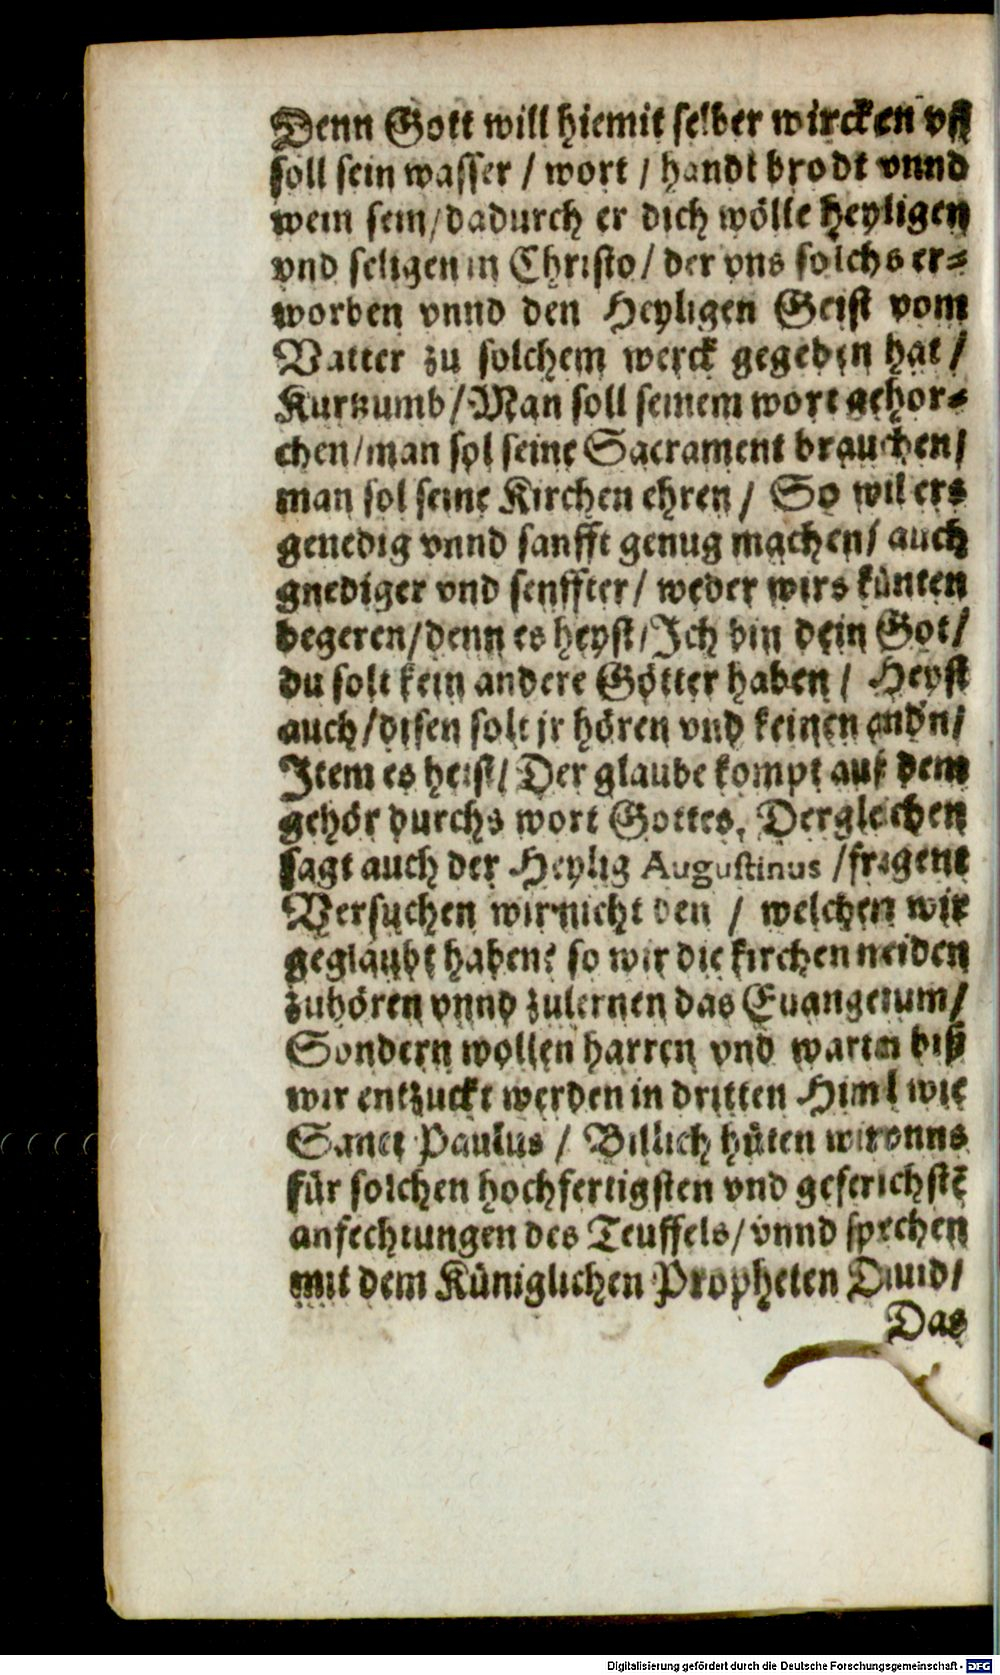 Denn Gott will hiemit selber wircken vñ
soll sein wasser / wort / handt brodt vnnd
wein sein / dadurch er dich wölle heyligen
vnd seligen in Christo / der vns solchs er⸗
worben vnnd den Heyligen Geist vom
Vatter zu solchem werck gegeben hat /
Kurtzumb / Man soll seinem wort gehor⸗
chen / man sol seine Sacrament brauchen /
man sol seine Kirchen ehren / So wil ers
genedig vnnd sanfft genug machen / auch
gnediger vnd senffter / weder wirs künten
begeren / denn es heyst / Ich bin dein Got /
du solt kein andere Götter haben / Heyst
auch / disen solt jr hören vnd keinen andn /
Item es heist / Der glaube kompt auß dem
gehör durchs wort Gottes. Dergleichen
sagt auch der Heylig Augustinus / fragent
Versuchen wir nicht den / welchen wir
geglaubt haben? so wir die kirchen meiden
zuhören vnnd zulernen das Euangelium /
Sondern wollen harren vnd warten biß
wir entzuckt werden in dritten Himl wie
Sanct Paulus / Billich hüten wir vnns
für solchen hochfertigsten vnd geferichstẽ
anfechtungen des Teuffels / vnnd sprechen
mit dem Küniglichen Propheten Dauid /
Das
Digitalisierung gefördert durch die Deutsche Forschungsgemeinschaft - DFG